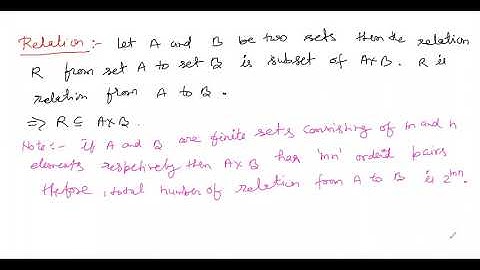 Relation :- Let A and B be two sets then the relation
R from set A to set B is subset of A×B. R is
relation from A to B.
⇒ R ⊆ A×B.
Note:- If A and B are finite sets consisting of m and n
elements respetively then A×B has 'mn' orded pairs
thefore, total number of relation from A to B is 2^mn.